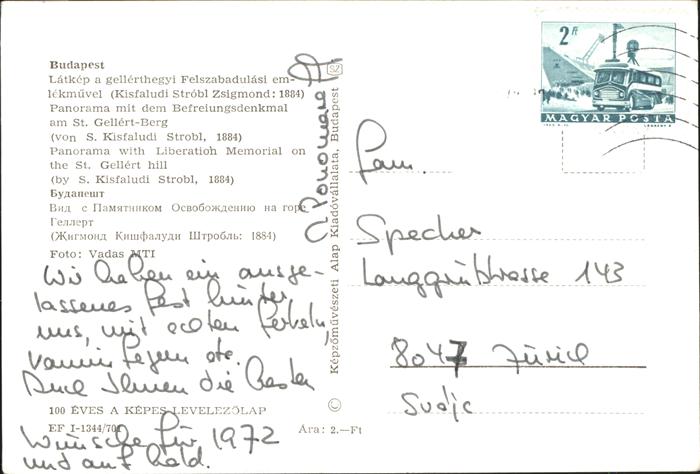 Budapest
Látkép a gellérthegyi Felszabadulási em-
lékművel (Kisfaludi Stróbl Zsigmond: 1884)
Panorama mit dem Befreiungsdenkmal
am St. Gellért-Berg
(von S. Kisfaludi Strobl, 1884)
Panorama with Liberation Memorial on
the St. Gellért hill
(by S. Kisfaludi Strobl, 1884)
Будапешт
Вид с Памятником Освобождению на горе
Геллерт
(Жигмонд Кишфалуди Штробль: 1884)
Foto: Vadas MTI
Wir haben ein ausge-
lassenes Fest hinter
uns, mit echten Ferkeln,
etc.
Auch Ihnen die besten
Wünsche für 1972
und auf bald.
100 ÉVES A KÉPES LEVELEZŐLAP
EF I-1344/701
Ara: 2.—Ft
© Képzőművészeti Alap Kiadóvállalata, Budapest SZ
2 Ft
MAGYAR POSTA
Fam.
Specker
Langgrütstrasse 143
8047 Zürich
Svájc